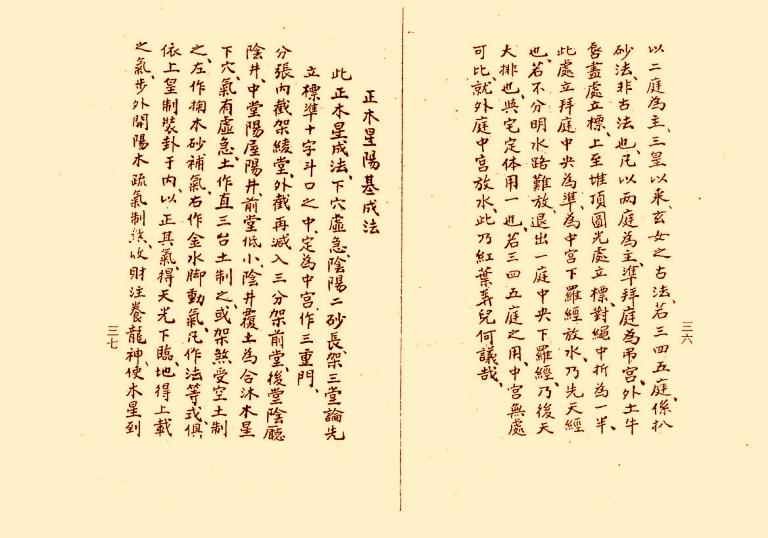 以二庭為主、三皇以來玄女之古法、若三四五庭係扒
砂法、非古法也、凡以兩庭為主、準拜庭為吊宮、外土牛
唇盡處立標、上至堆頂圓光處立標、對繩中折為一半、
此處立拜庭中央為準、為中宮下羅經放水、乃先天經
也、若不分明水路難放、退出一庭中央下羅經、乃後天
大排也、與宅定体用一也、若三四五庭之用、中宮無處
可比、就外庭中宮放水、此乃紅葉弄兒何議哉、
三六
正木星陽基成法
此正木星成法、下穴虛急、陰陽二砂長、架三堂論、先
立標準十字斗口之中、定為中宮、作三重門、
分張內截架綾堂、外截再減入三分架前堂、後堂陰廳
陰井、中堂陽屋陽井、前堂低小、陰井覆土為合沐木星
下穴氣有虛急、土作直三台土制之、或架煞受空土制
之、左作掬木砂補氣、右作金水脚動氣、凡作法等式、俱
依上皇制裝卦于內、以正其氣、得天光下臨、地得上載
之氣、步外開陽水疏氣制煞、收財注養龍神、使木星到
三七